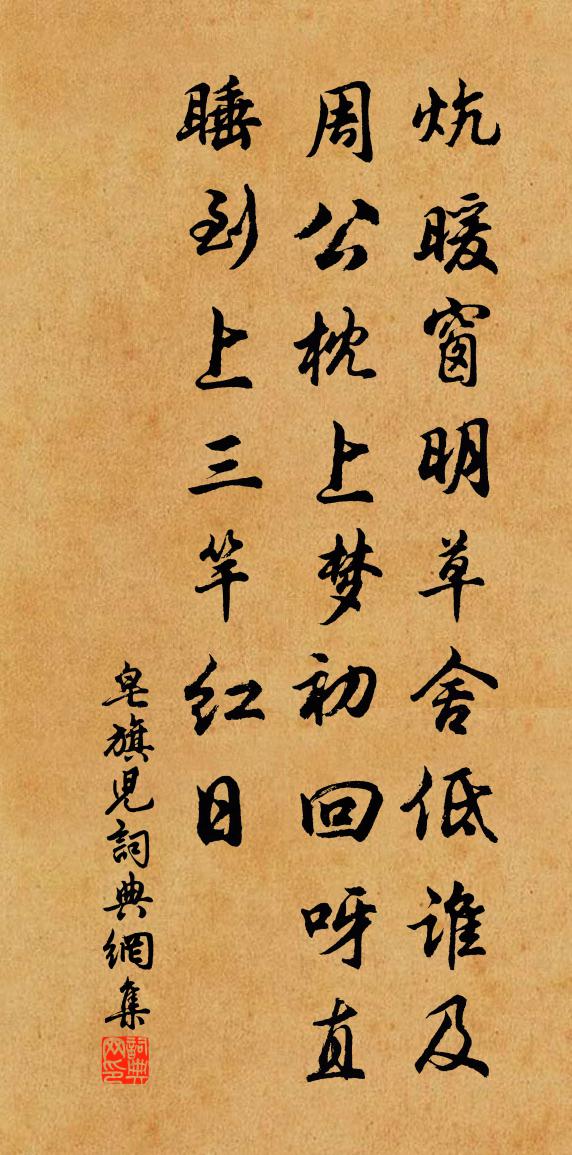 炕暖窗明草舍低谁及
周公枕上梦初回呀直
睡到上三竿红日
皂旗儿詞典網集
詞典网印